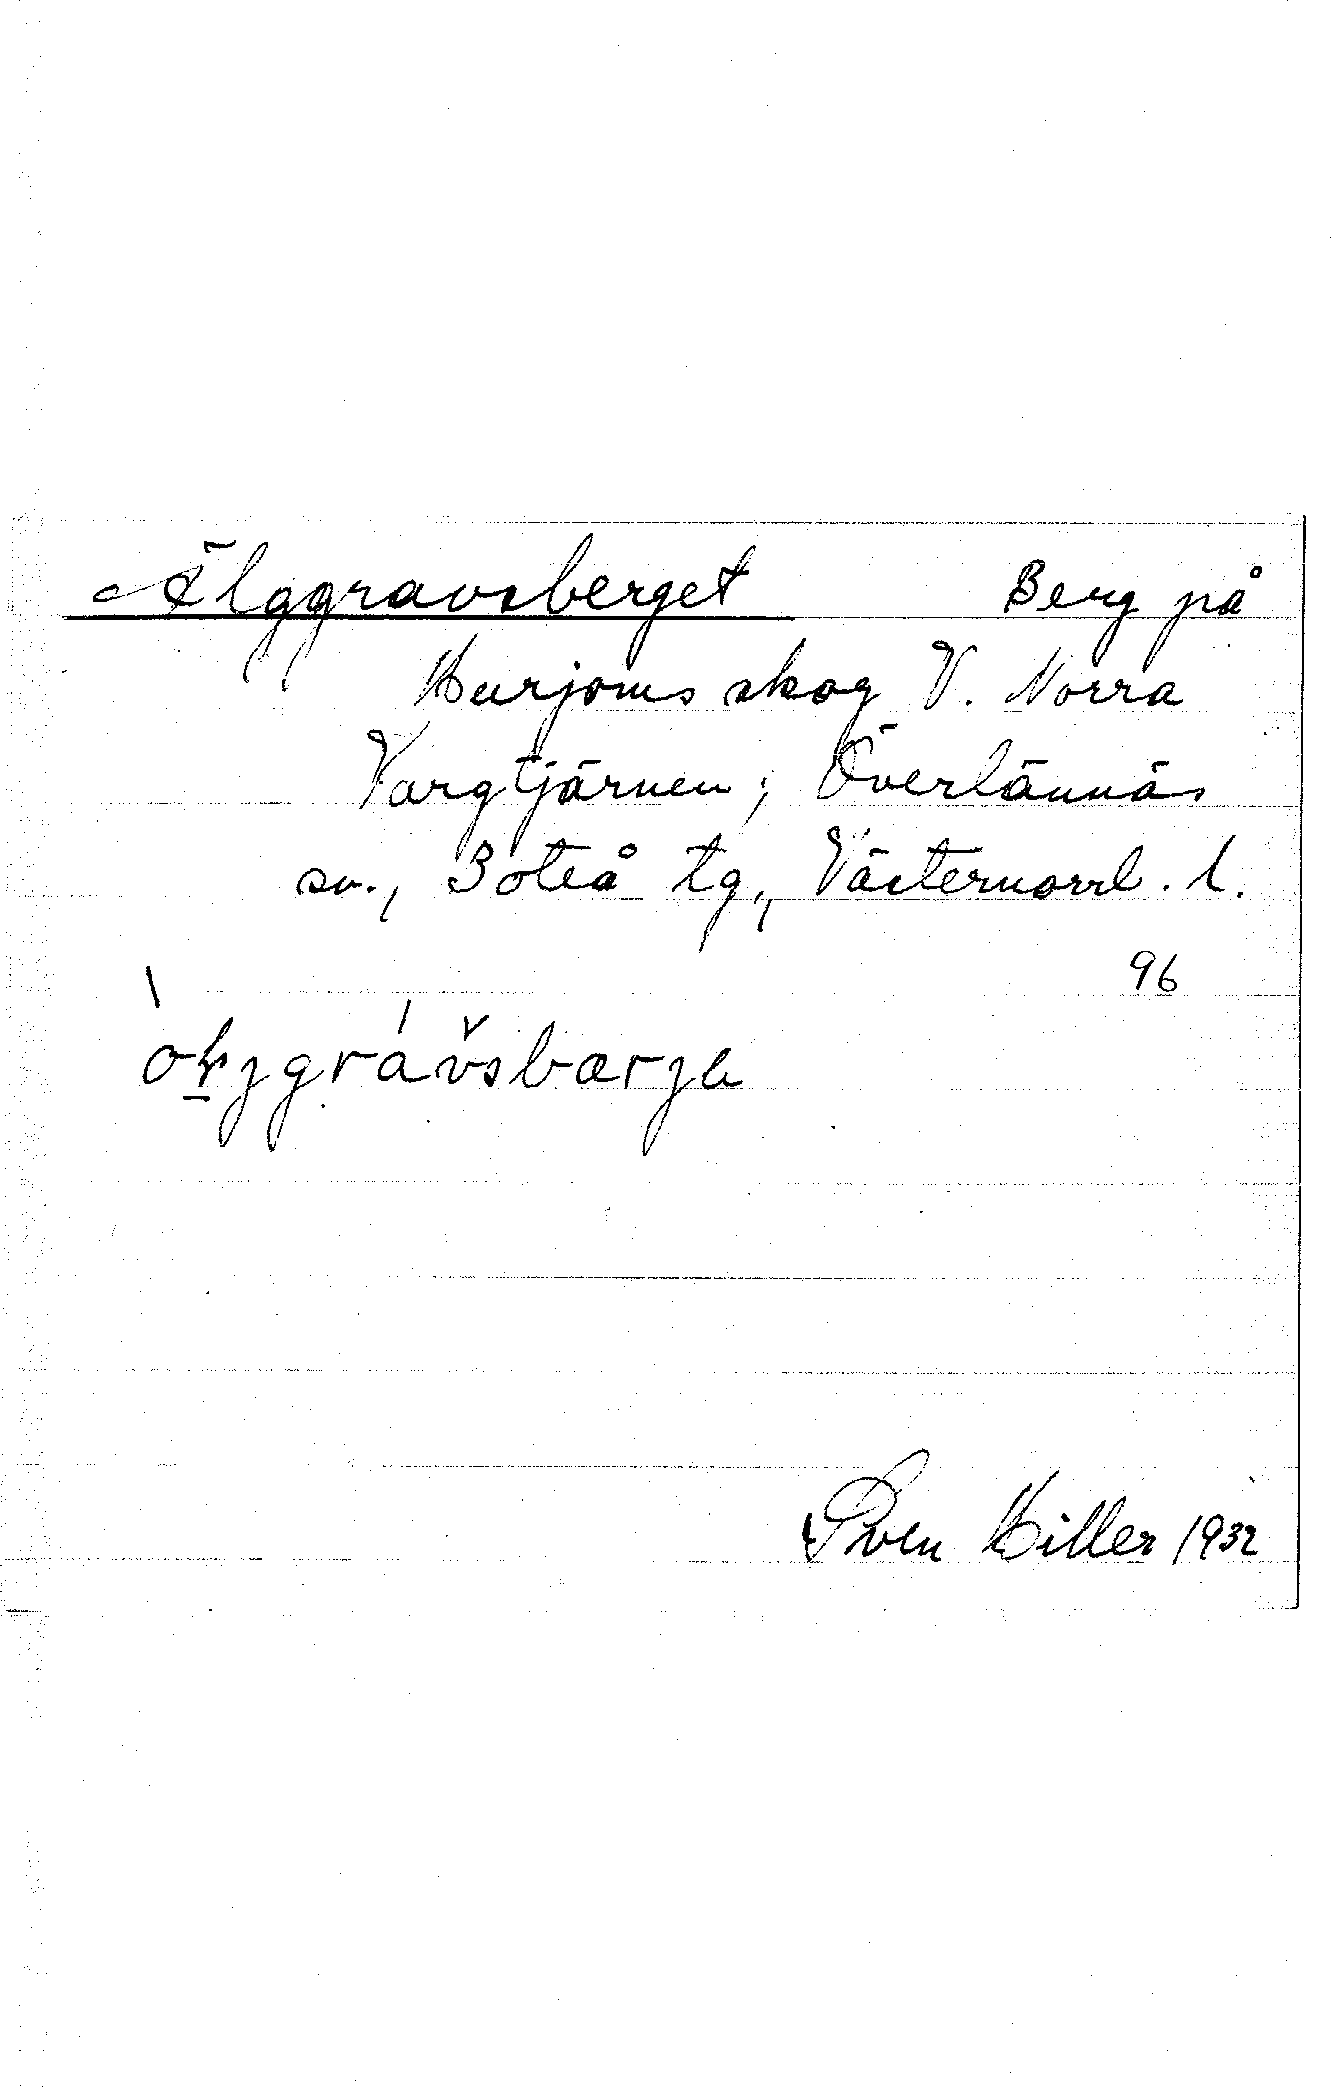 Älggravsberget Berg på
Hurjoms skog V. Norra
Vargtjärnen; Överlännäs
sn., Boteå tg., Västernorrl. l.
96
Sven Hiller 1932